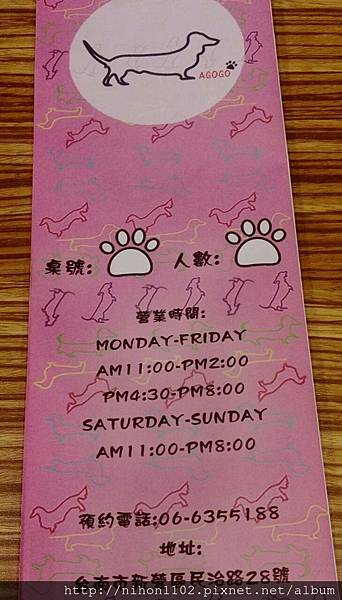 AGOGO
桌號: 人數:
營業時間:
MONDAY-FRIDAY
AM11:00-PM2:00
PM4:30-PM8:00
SATURDAY-SUNDAY
AM11:00-PM8:00
預約電話:06-6355188
地址:
台南市新營區民治路28號
http://nihon1102.pixnet.net/album